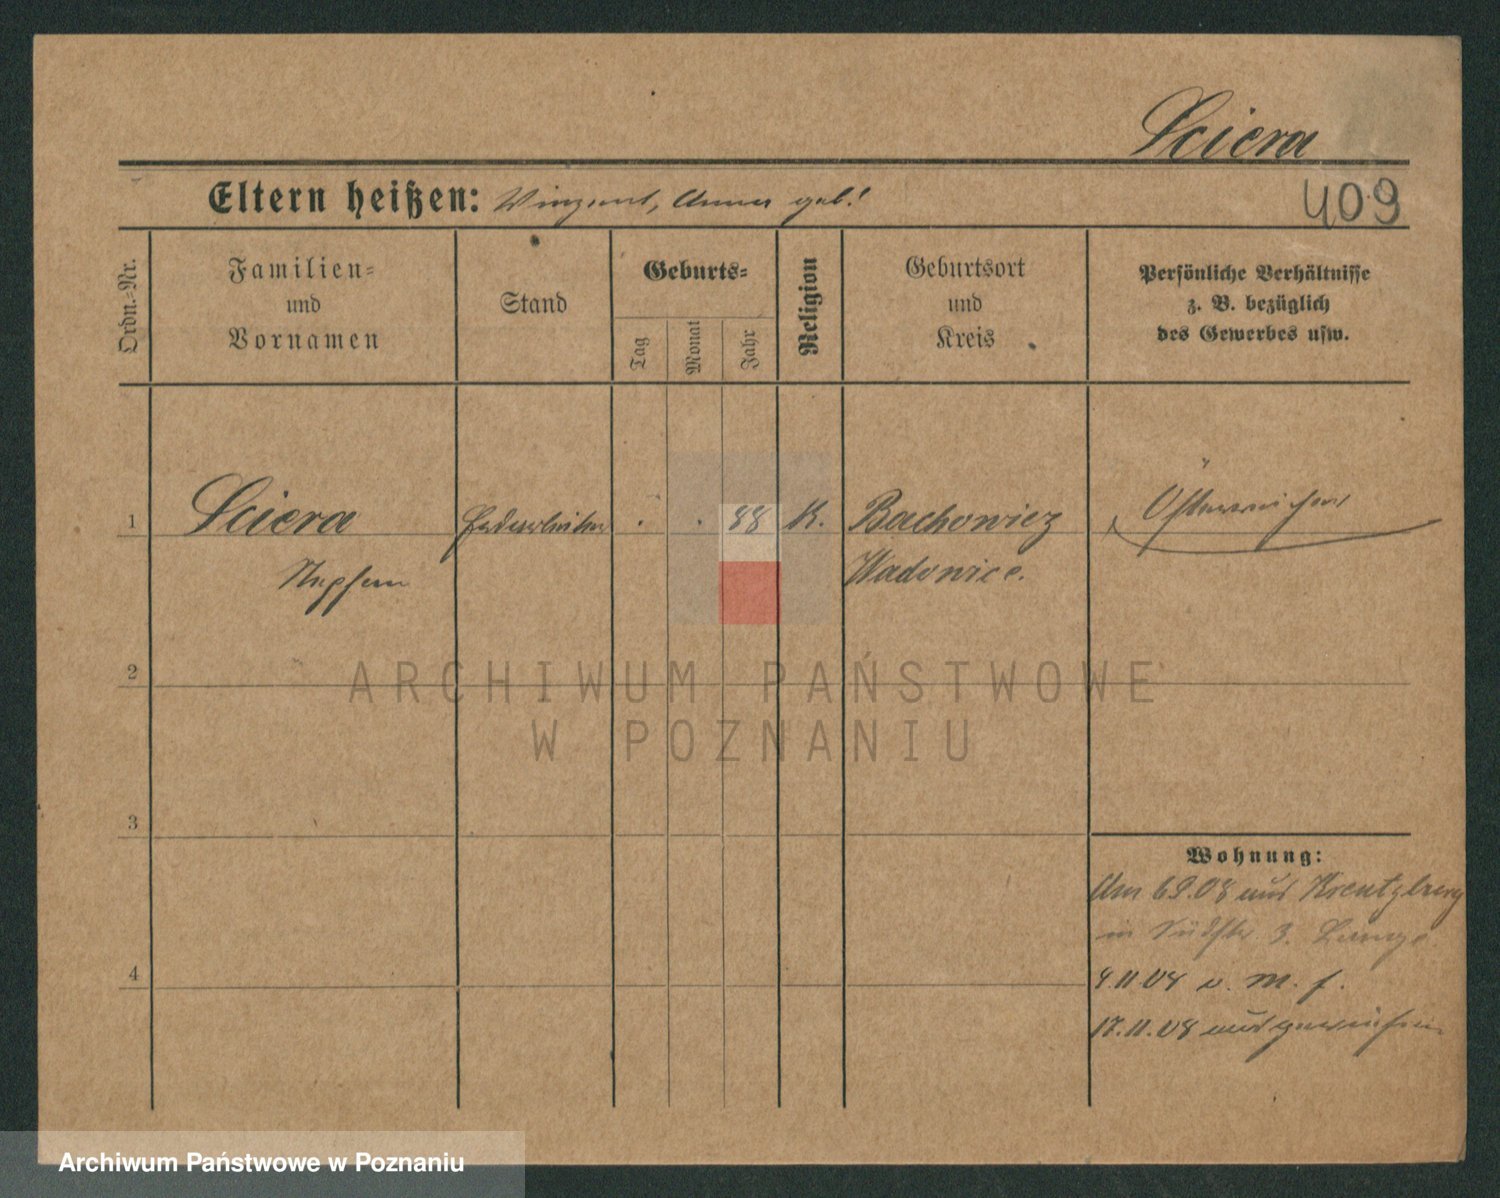 Sciera
Eltern heißen: Vinzent, Anna geb!
409
Ordn.-Nr.
Familien-
und
Vornamen
Stand
Geburts-
Tag
Monat
Jahr
Religion
Geburtsort
und
Kreis
Persönliche Verhältnisse
z. B. bezüglich
des Gewerbes usw.
1
Sciera
Erdarbeiter
88
K.
Bachowicz
Österreicher
Stephan
Wadowice.
ARCHIWUM PAŃSTWOWE
W POZNANIU
2
3
4
Wohnung:
Am 6.9.08 aus Kreutzburg
in 3. Lange
9.11.08 v. M. f.
17.11.08 ausgewiesen
Archiwum Państwowe w Poznaniu